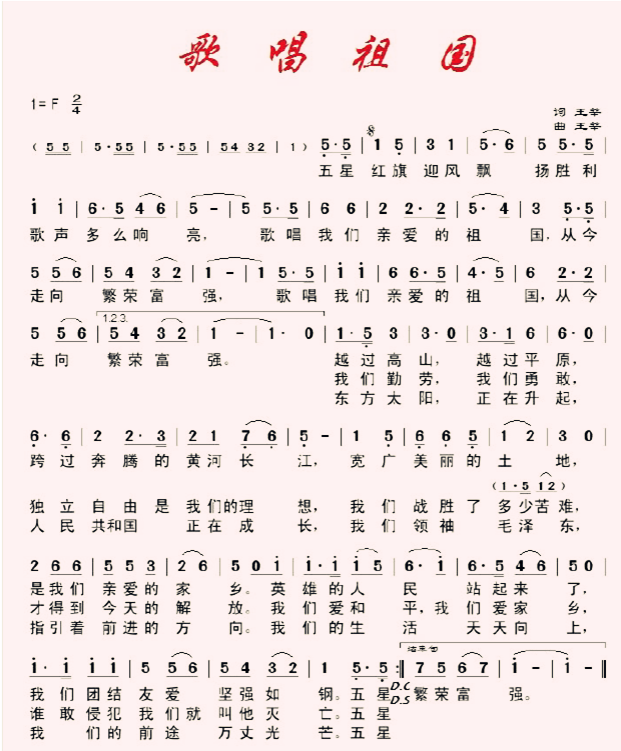 歌唱祖国
1=F 2/4
词 王莘
曲 王莘
( 5 5 | 5· 55 | 5·55 | 54 32 | 1 ) 5·5 | 1 5 | 3 1 | 5·6 | 5 5·5 |
五星 红旗 迎风飘 扬胜利
i i | 6·5 4 6 | 5 - | 5 5·5 | 6 6 | 2 2·2 | 5·4 | 3 5·5 |
歌声多么响 亮, 歌唱我们亲爱的祖 国,从今
5 5 6 | 5 4 3 2 | 1 - | 1 5·5 | i i | 6 6·5 | 4·5 | 6 2·2 |
走向 繁荣富 强, 歌唱我们亲爱的祖 国,从今
1.2.3.
5 5 6 | 5 4 3 2 | 1 - | 1· 0 | 1·5 3 | 3·0 | 3·1 6 | 6·0 |
走向 繁荣富 强。 越过高山, 越过平原,
我们勤劳, 我们勇敢,
东方太阳, 正在升起,
6·6 | 2 2·3 | 2 1 7 6 | 5 - | 1 5 | 6 6 5 | 1 2 | 3 0 |
跨过奔腾的黄河长 江, 宽广美丽的土 地,
(1·5 12)
独立自由是我们的理 想, 我们战胜了多少苦难,
人民共和国 正在成 长, 我们领袖 毛泽东,
2 6 6 | 5 5 3 | 2 6 | 5 0 i | i·i i 5 | 6·i | 6·5 4 6 | 5 0 |
是我们亲爱的家 乡。英雄的人 民 站起来了,
才得到今天的解 放。我们爱和 平,我们爱家乡,
指引着前进的方 向。我们的生 活 天天向上,
结束句
i·i | i i i | 5 5 6 | 5 4 3 2 | 1 5·5 :‖ 7 5 6 7 | i - | i - ‖
我们团结友爱 坚强如 钢。五星 D.C 繁荣富 强。
谁敢侵犯我们就 叫他灭 亡。五星 D.S
我 们的前途 万丈光 芒。五星